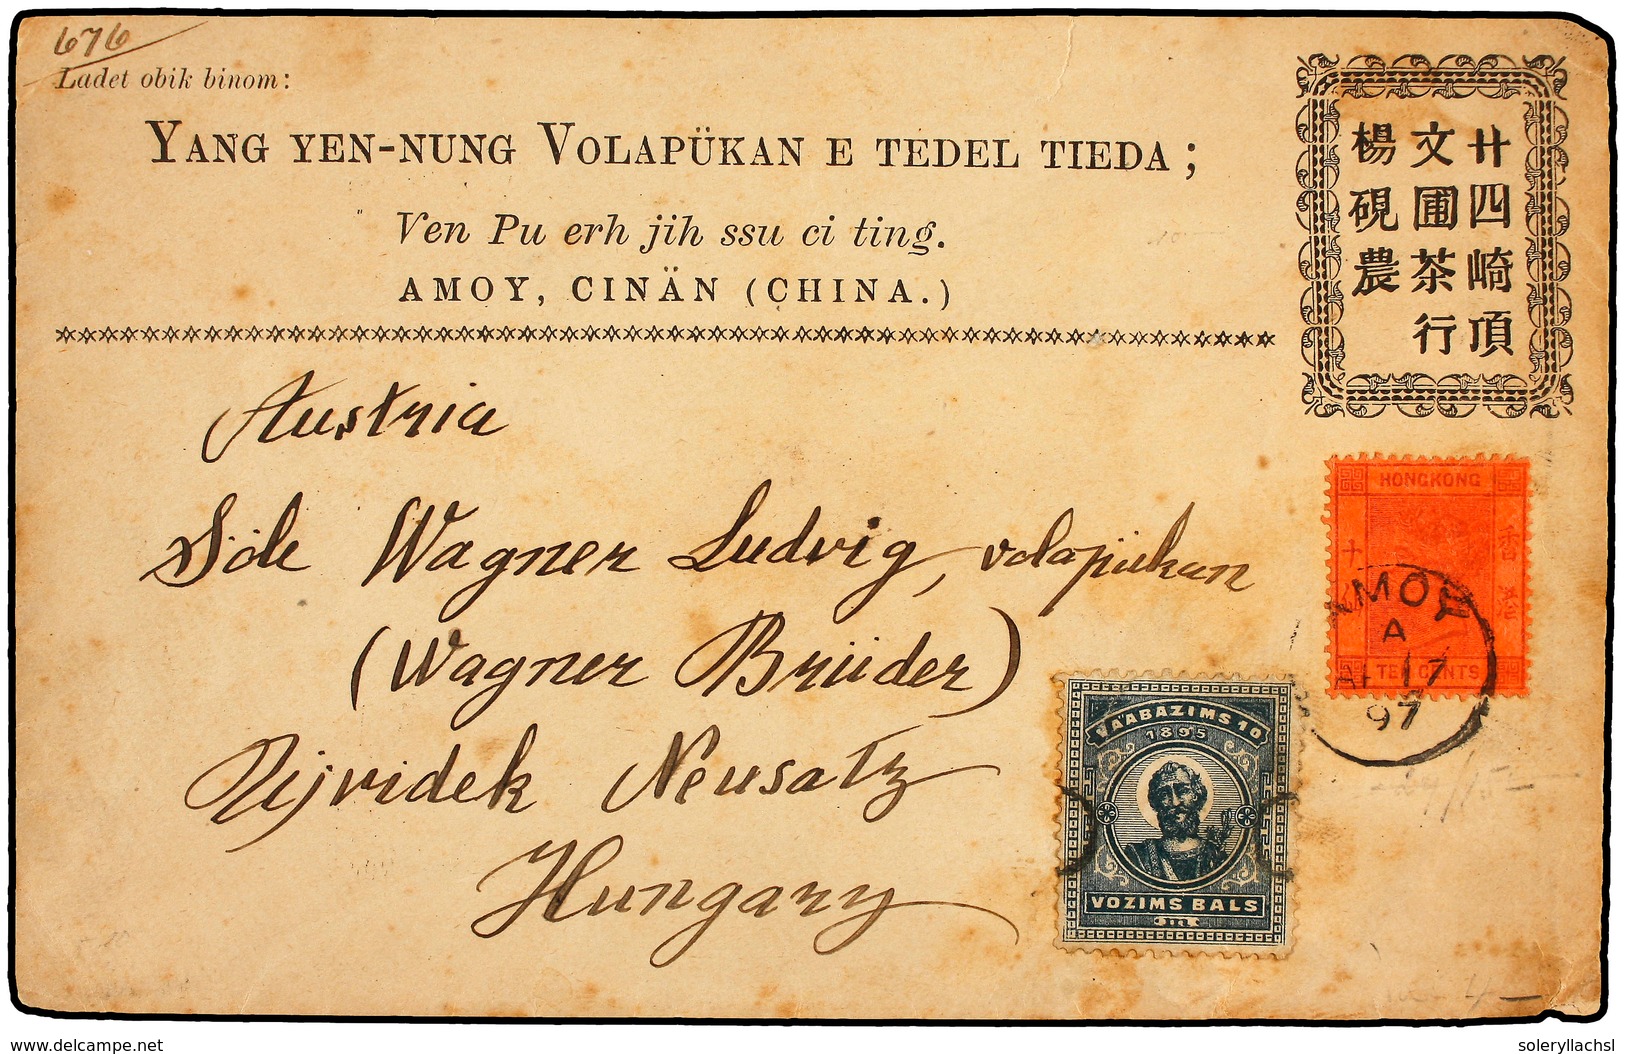 676
Ladet obik binom:
YANG YEN-NUNG VOLAPÜKAN E TEDEL TIEDA;
Ven Pu erh jih ssu ci ting.
AMOY, CINÄN (CHINA.)
廿四崎頂
文圃茶行
楊硯農
Austria
Söle Wagner Ludvig, volapükan
(Wagner Brüder)
Ujvidek Neusatz
Hungary
HONGKONG
香港
TEN CENTS
AMOY
A
17
97
VAABAZIMS 10
1895
VOZIMS BALS
delcampe.net
soleryllachsl